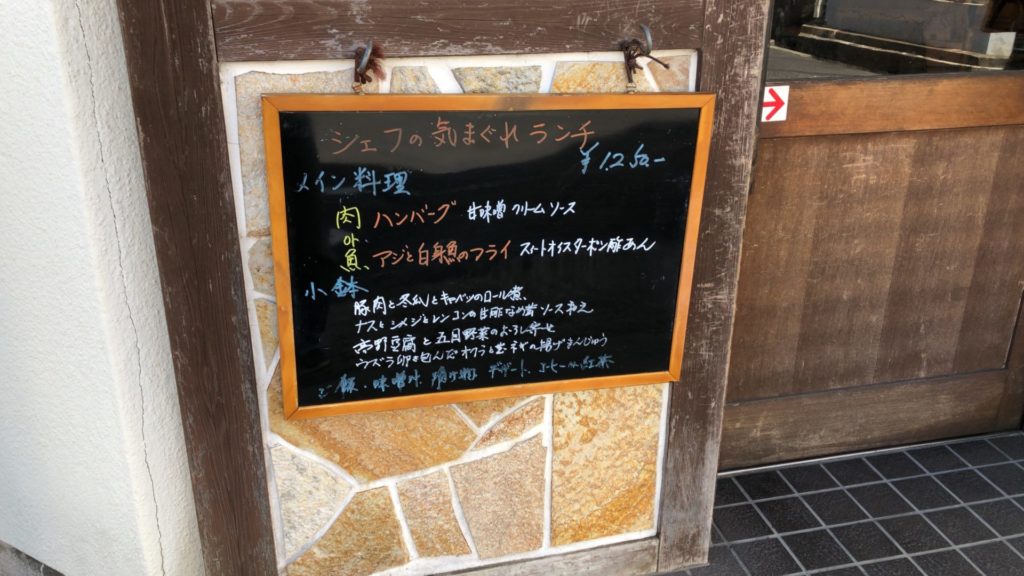 シェフの気まぐれランチ
¥1250-
メイン料理
肉 ハンバーグ 甘味噌クリームソース
or
魚 アジと白身魚のフライ スイートオイスターポン酢あん
小鉢
豚肉と冬瓜とキャベツのロール煮
ナスとシメジとレンコンの ソース和え
豆腐と五目野菜の
ウズラ卵を包んだオクラと 揚げまんじゅう
ご飯、味噌汁、漬け物、デザート、コーヒーor紅茶